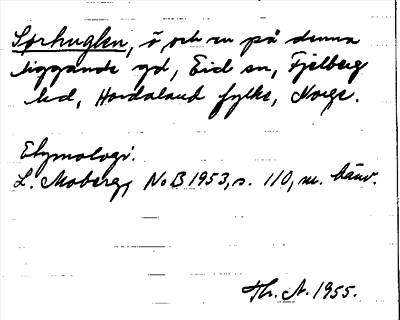 Sørhuglen, ö, och en på denna
liggande gd, Eid sn, Fjelberg
hd, Hordaland fylke, Norge.
Etymologi.
L. Moberg, NoB 1953, s. 110, m. hänv.
Th. A. 1955.